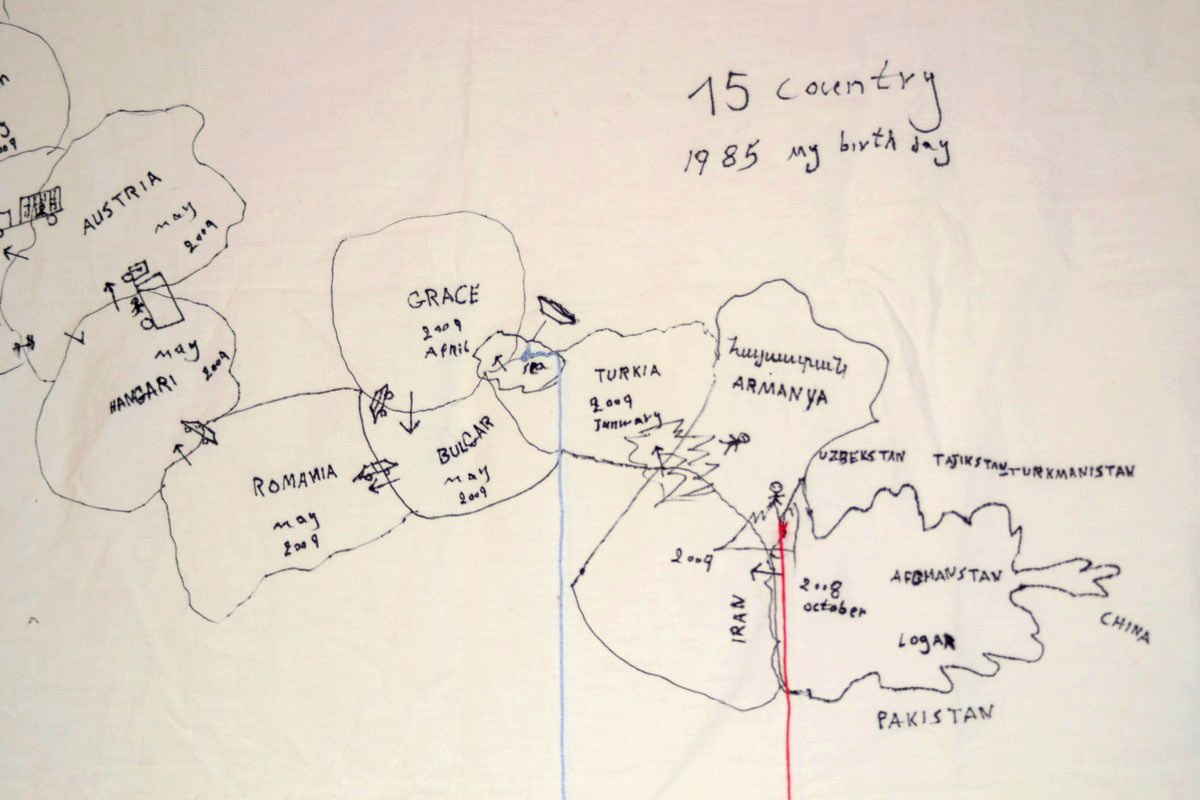 15 couentry
1985 my birth day
AUSTRIA
may
2009
GRACE
2009
April
sea
TURKIA
2009
Junwary
Հայաստան
ARMANYA
HANGARI
may
2009
BULGAR
may
2009
ROMANIA
may
2009
UZBEKSTAN TAJIKSTAN TURKMANISTAN
2009
IRAN
2008
october
AFGHANSTAN
LOGAR
CHINA
PAKISTAN